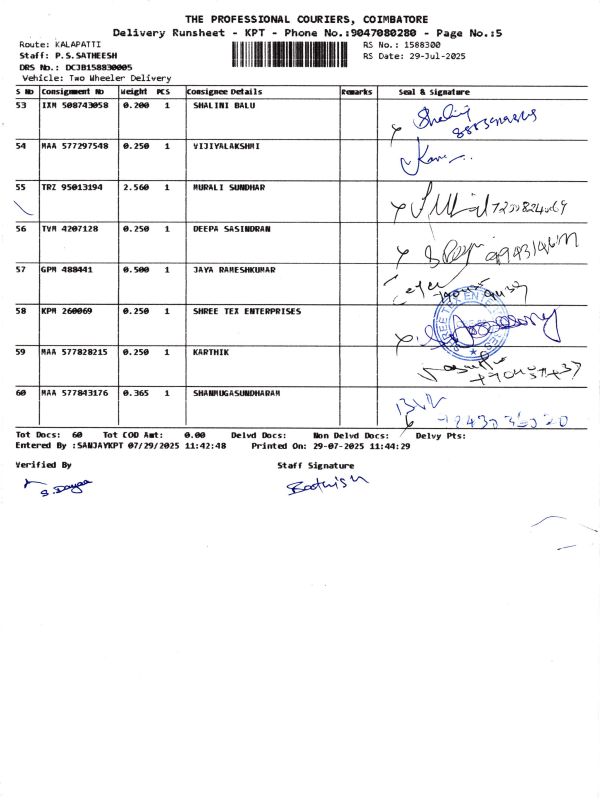 THE PROFESSIONAL COURIERS, COIMBATORE
Delivery Runsheet - KPT - Phone No.:9047080280 - Page No.:5
Route: KALAPATTI RS No.: 1588300
Staff: P.S.SATHEESH RS Date: 29-Jul-2025
DRS No.: DCJB158830005
Vehicle: Two Wheeler Delivery
S No Consignment No Weight PCS Consignee Details Remarks Seal & signature
53 IXM 508743058 0.200 1 SHALINI BALU
Shalini
54 MAA 577297548 0.250 1 VIJIYALAKSHMI
55 TRZ 95013194 2.560 1 MURALI SUNDHAR
56 TVM 4207128 0.250 1 DEEPA SASINDRAN
57 GPM 488441 0.500 1 JAYA RAMESHKUMAR
58 KPM 260069 0.250 1 SHREE TEX ENTERPRISES
SHREE TEX ENTERPRISES
59 MAA 577828215 0.250 1 KARTHIK
60 MAA 577843176 0.365 1 SHANMUGASUNDHARAM
Tot Docs: 60 Tot COD Amt: 0.00 Delvd Docs: Non Delvd Docs: Delvy Pts:
Entered By :SANJAYKPT 07/29/2025 11:42:48 Printed On: 29-07-2025 11:44:29
Verified By Staff Signature